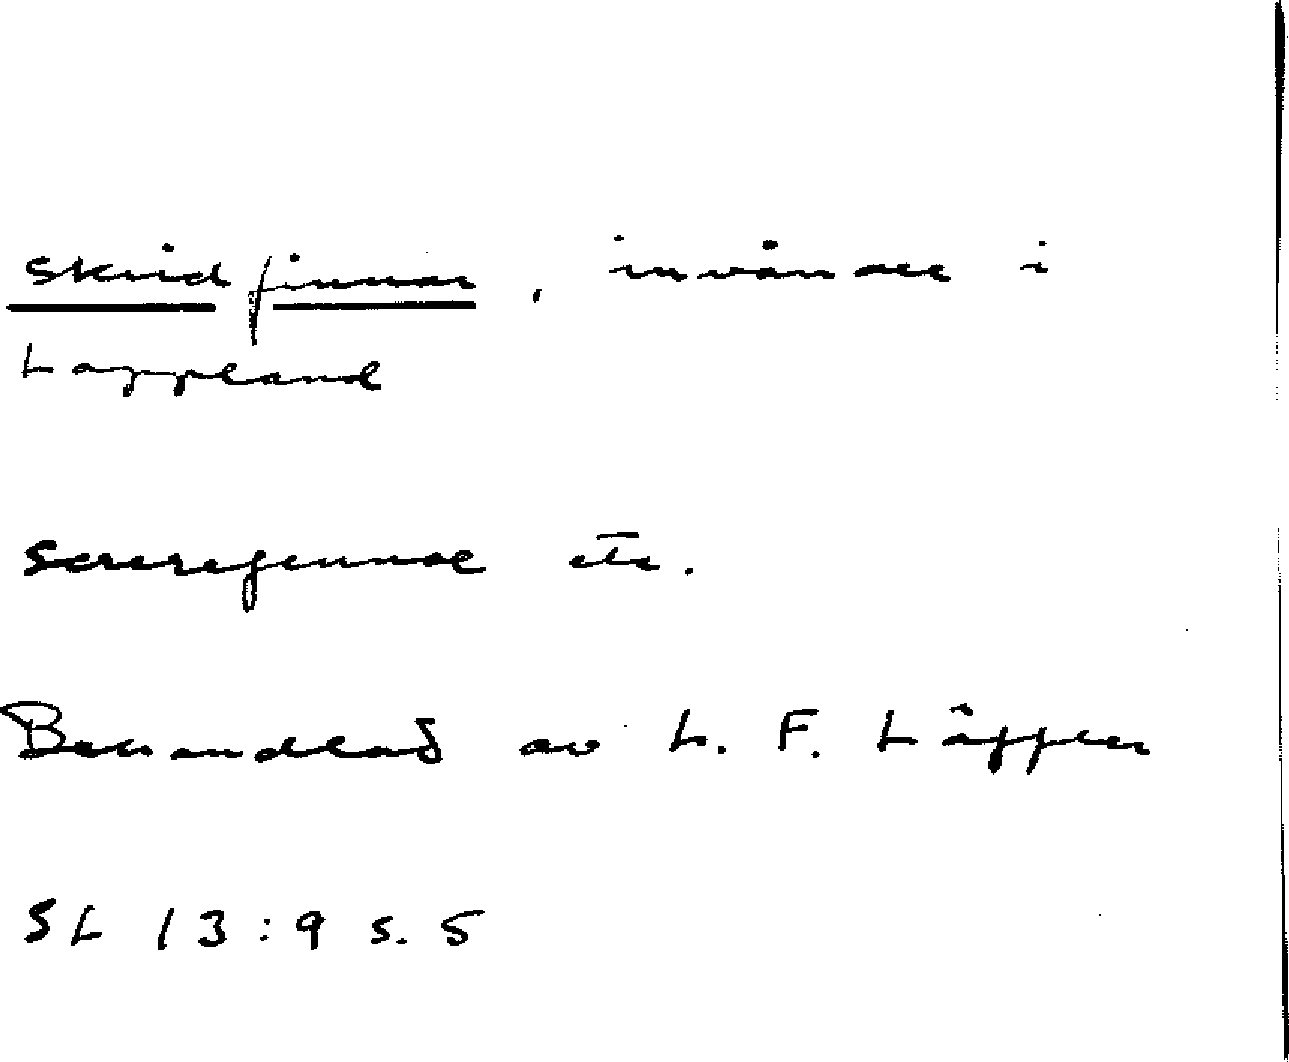 skridfinnar, invånare i
Lappland
Screrefennae etc.
Behandlad av L. F. Läffler
SL 13:9 s. 5